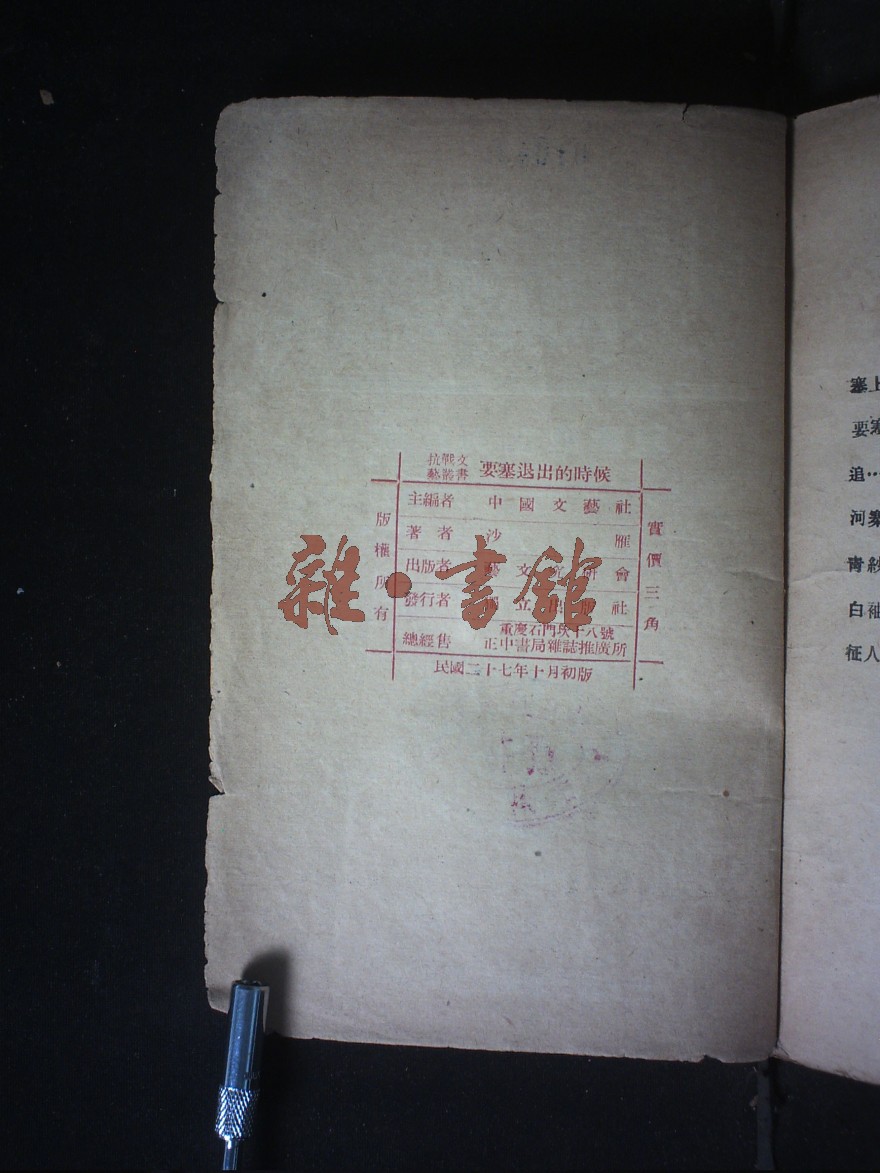 抗戰文
藝叢書
要塞退出的時候
主編者 中國文藝社
著者 沙雁
出版者 藝文 研會
發行者 獨立出版社
總經售 重慶石門坎十八號
正中書局雜誌推廣所
民國二十七年十月初版
版權所有
實價三角
雜·書館
塞上
要塞
追‥
河
青紗
白袖
征人